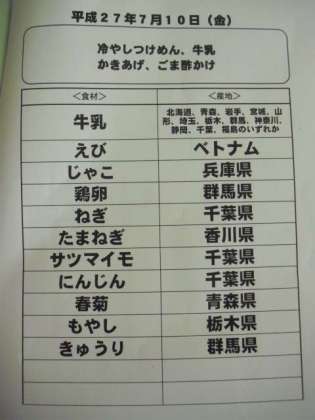 平成27年7月10日(金)
冷やしつけめん、牛乳
かきあげ、ごま酢かけ
<食材> <産地>
牛乳 北海道、青森、岩手、宮城、山
形、埼玉、栃木、群馬、神奈川、
静岡、千葉、福島のいずれか
えび ベトナム
じゃこ 兵庫県
鶏卵 群馬県
ねぎ 千葉県
たまねぎ 香川県
サツマイモ 千葉県
にんじん 千葉県
春菊 青森県
もやし 栃木県
きゅうり 群馬県